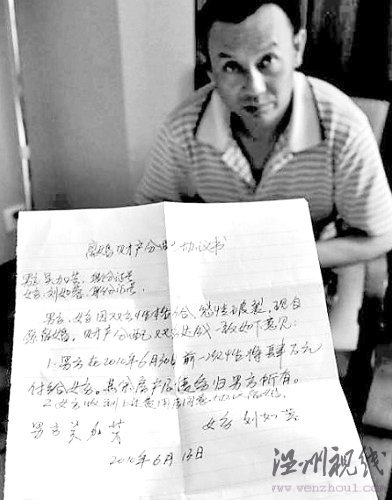 离婚财产分割协议书
男方 吴加芳 身份证号
女方 刘如蓉 身份证号
男方、女方因双方性格不合 感情破裂，现自
愿离婚，财产分割已双方达成一致如下意见：
1. 男方在2010年6月30日前一次性将肆万元
付给女方。其余房产
归男方所有。
2. 女方收到
男方 吴加芳
女方 刘如蓉
2010年6月13日
温州视线
www.wenzhou1.com